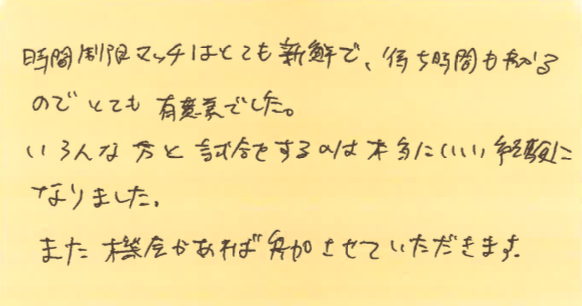 時間制限マッチはとても新鮮で、待ち時間もわかる
のでとても有意義でした。
いろんな方と試合をするのは本当にいい経験に
なりました。
また機会があれば参加させていただきます。